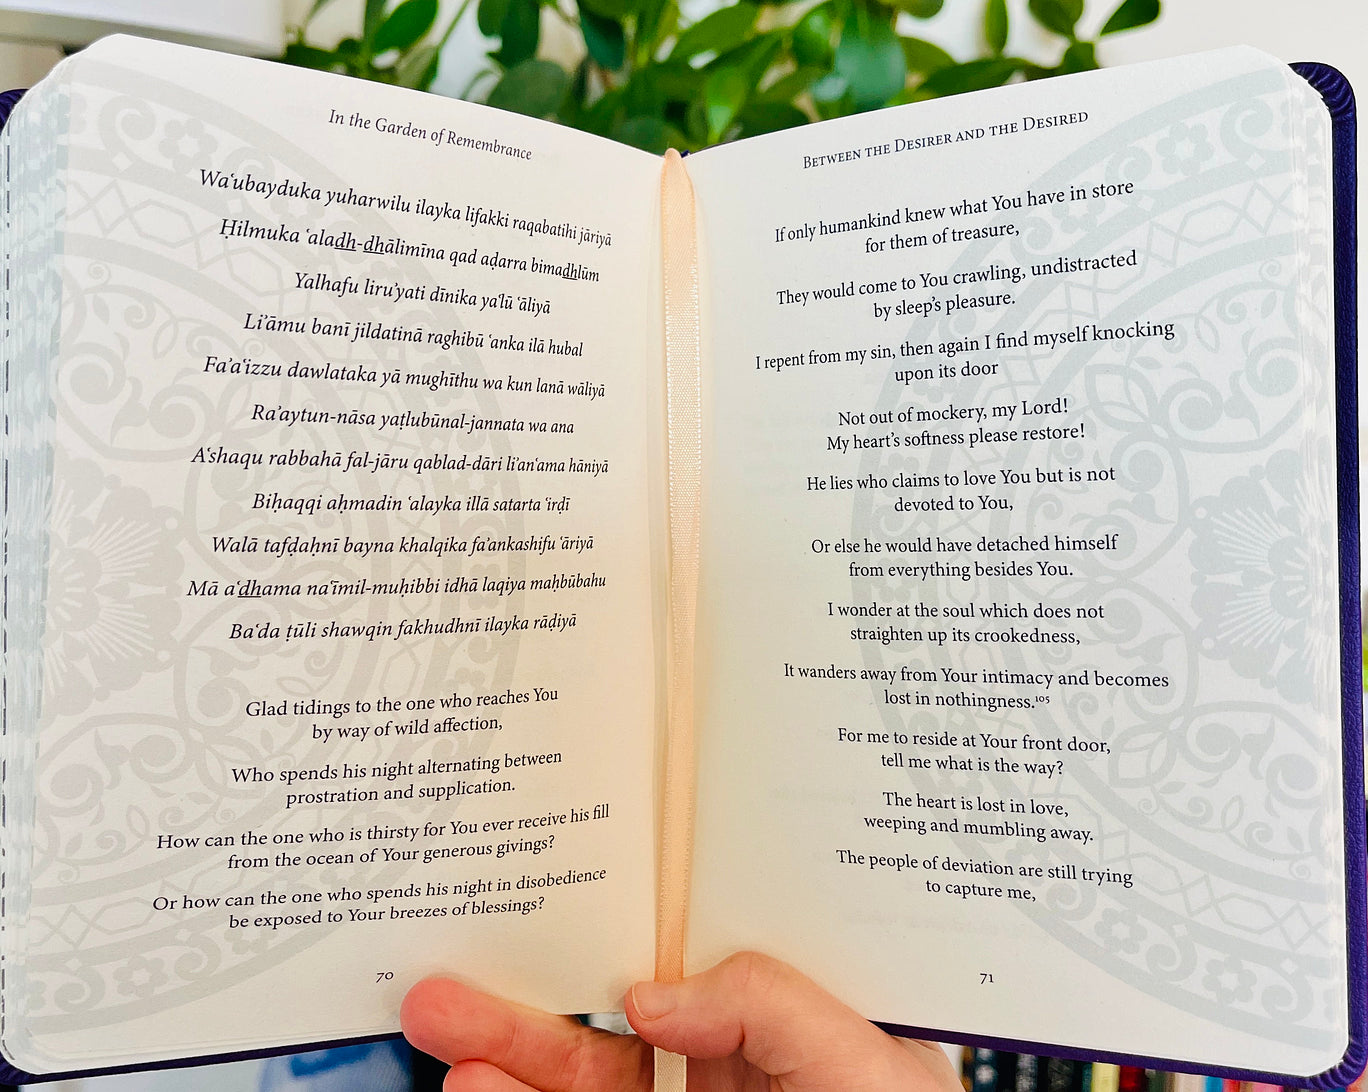 In the Garden of Remembrance
Wa‘ubayduka yuharwilu ilayka lifakki raqabatihi jāriyā
Ḥilmuka ‘aladh-dhālimīna qad aḍarra bimadhlūm
Yalhafu liru’yati dīnika ya‘lū ‘āliyā
Li’āmu banī jildatinā raghibū ‘anka ilā hubal
Fa’a‘izzu dawlataka yā mughīthu wa kun lanā wāliyā
Ra’aytun-nāsa yaṭlubūnal-jannata wa ana
A‘shaqu rabbahā fal-jāru qablad-dāri li’an‘ama hāniyā
Biḥaqqi aḥmadin ‘alayka illā satarta ‘irḍī
Walā tafḍaḥnī bayna khalqika fa’ankashifu ‘āriyā
Mā a‘dhama na‘īmil-muḥibbi idhā laqiya maḥbūbahu
Ba‘da ṭūli shawqin fakhudhnī ilayka rāḍiyā
Glad tidings to the one who reaches You
by way of wild affection,
Who spends his night alternating between
prostration and supplication.
How can the one who is thirsty for You ever receive his fill
from the ocean of Your generous givings?
Or how can the one who spends his night in disobedience
be exposed to Your breezes of blessings?
70
Between the Desirer and the Desired
If only humankind knew what You have in store
for them of treasure,
They would come to You crawling, undistracted
by sleep’s pleasure.
I repent from my sin, then again I find myself knocking
upon its door
Not out of mockery, my Lord!
My heart’s softness please restore!
He lies who claims to love You but is not
devoted to You,
Or else he would have detached himself
from everything besides You.
I wonder at the soul which does not
straighten up its crookedness,
It wanders away from Your intimacy and becomes
lost in nothingness.¹⁰⁵
For me to reside at Your front door,
tell me what is the way?
The heart is lost in love,
weeping and mumbling away.
The people of deviation are still trying
to capture me,
71